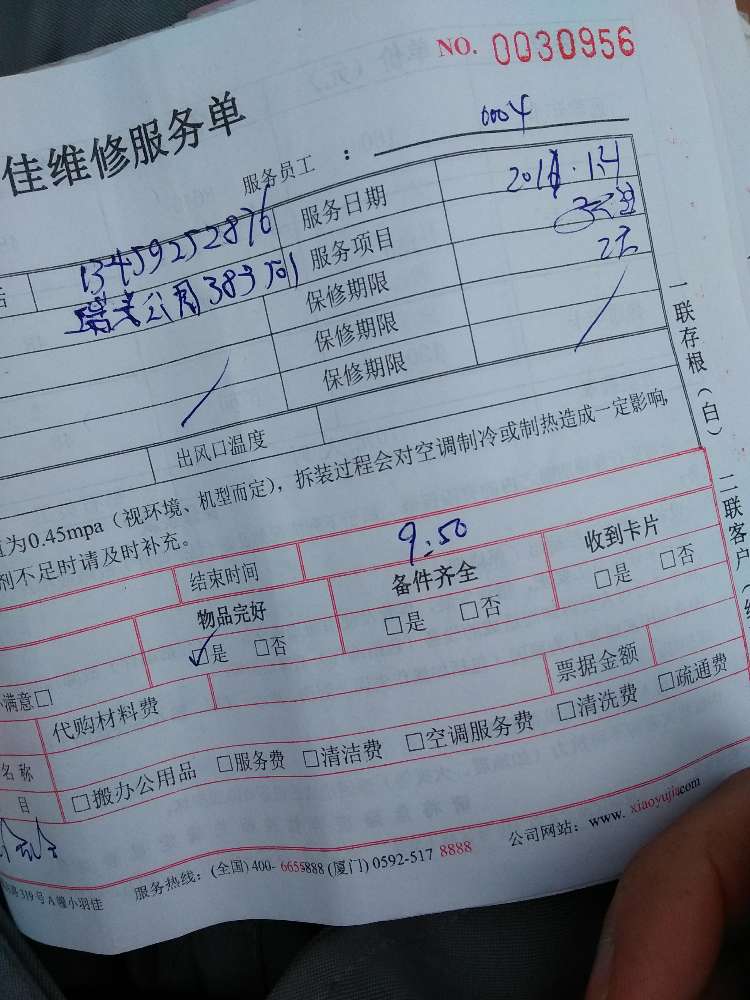 NO. 0030956
佳维修服务单
服务员工 ： 0004
话 13459252876 服务日期
公司 383 501 服务项目
保修期限 2天
保修期限
保修期限
出风口温度
值为0.45mpa（视环境、机型而定），拆装过程会对空调制冷或制热造成一定影响，
剂不足时请及时补充。
结束时间 9:50
物品完好 备件齐全 收到卡片
☑是 □否 □是 □否 □是 □否
满意□
代购材料费 票据金额
名称
目 □搬办公用品 □服务费 □清洁费 □空调服务费 □清洗费 □疏通费
319号A幢小羽佳 服务热线：(全国) 400- 6655888 (厦门) 0592-517 8888 公司网站：www. xiaoyujia.com
一联存根（白） 二联客户（